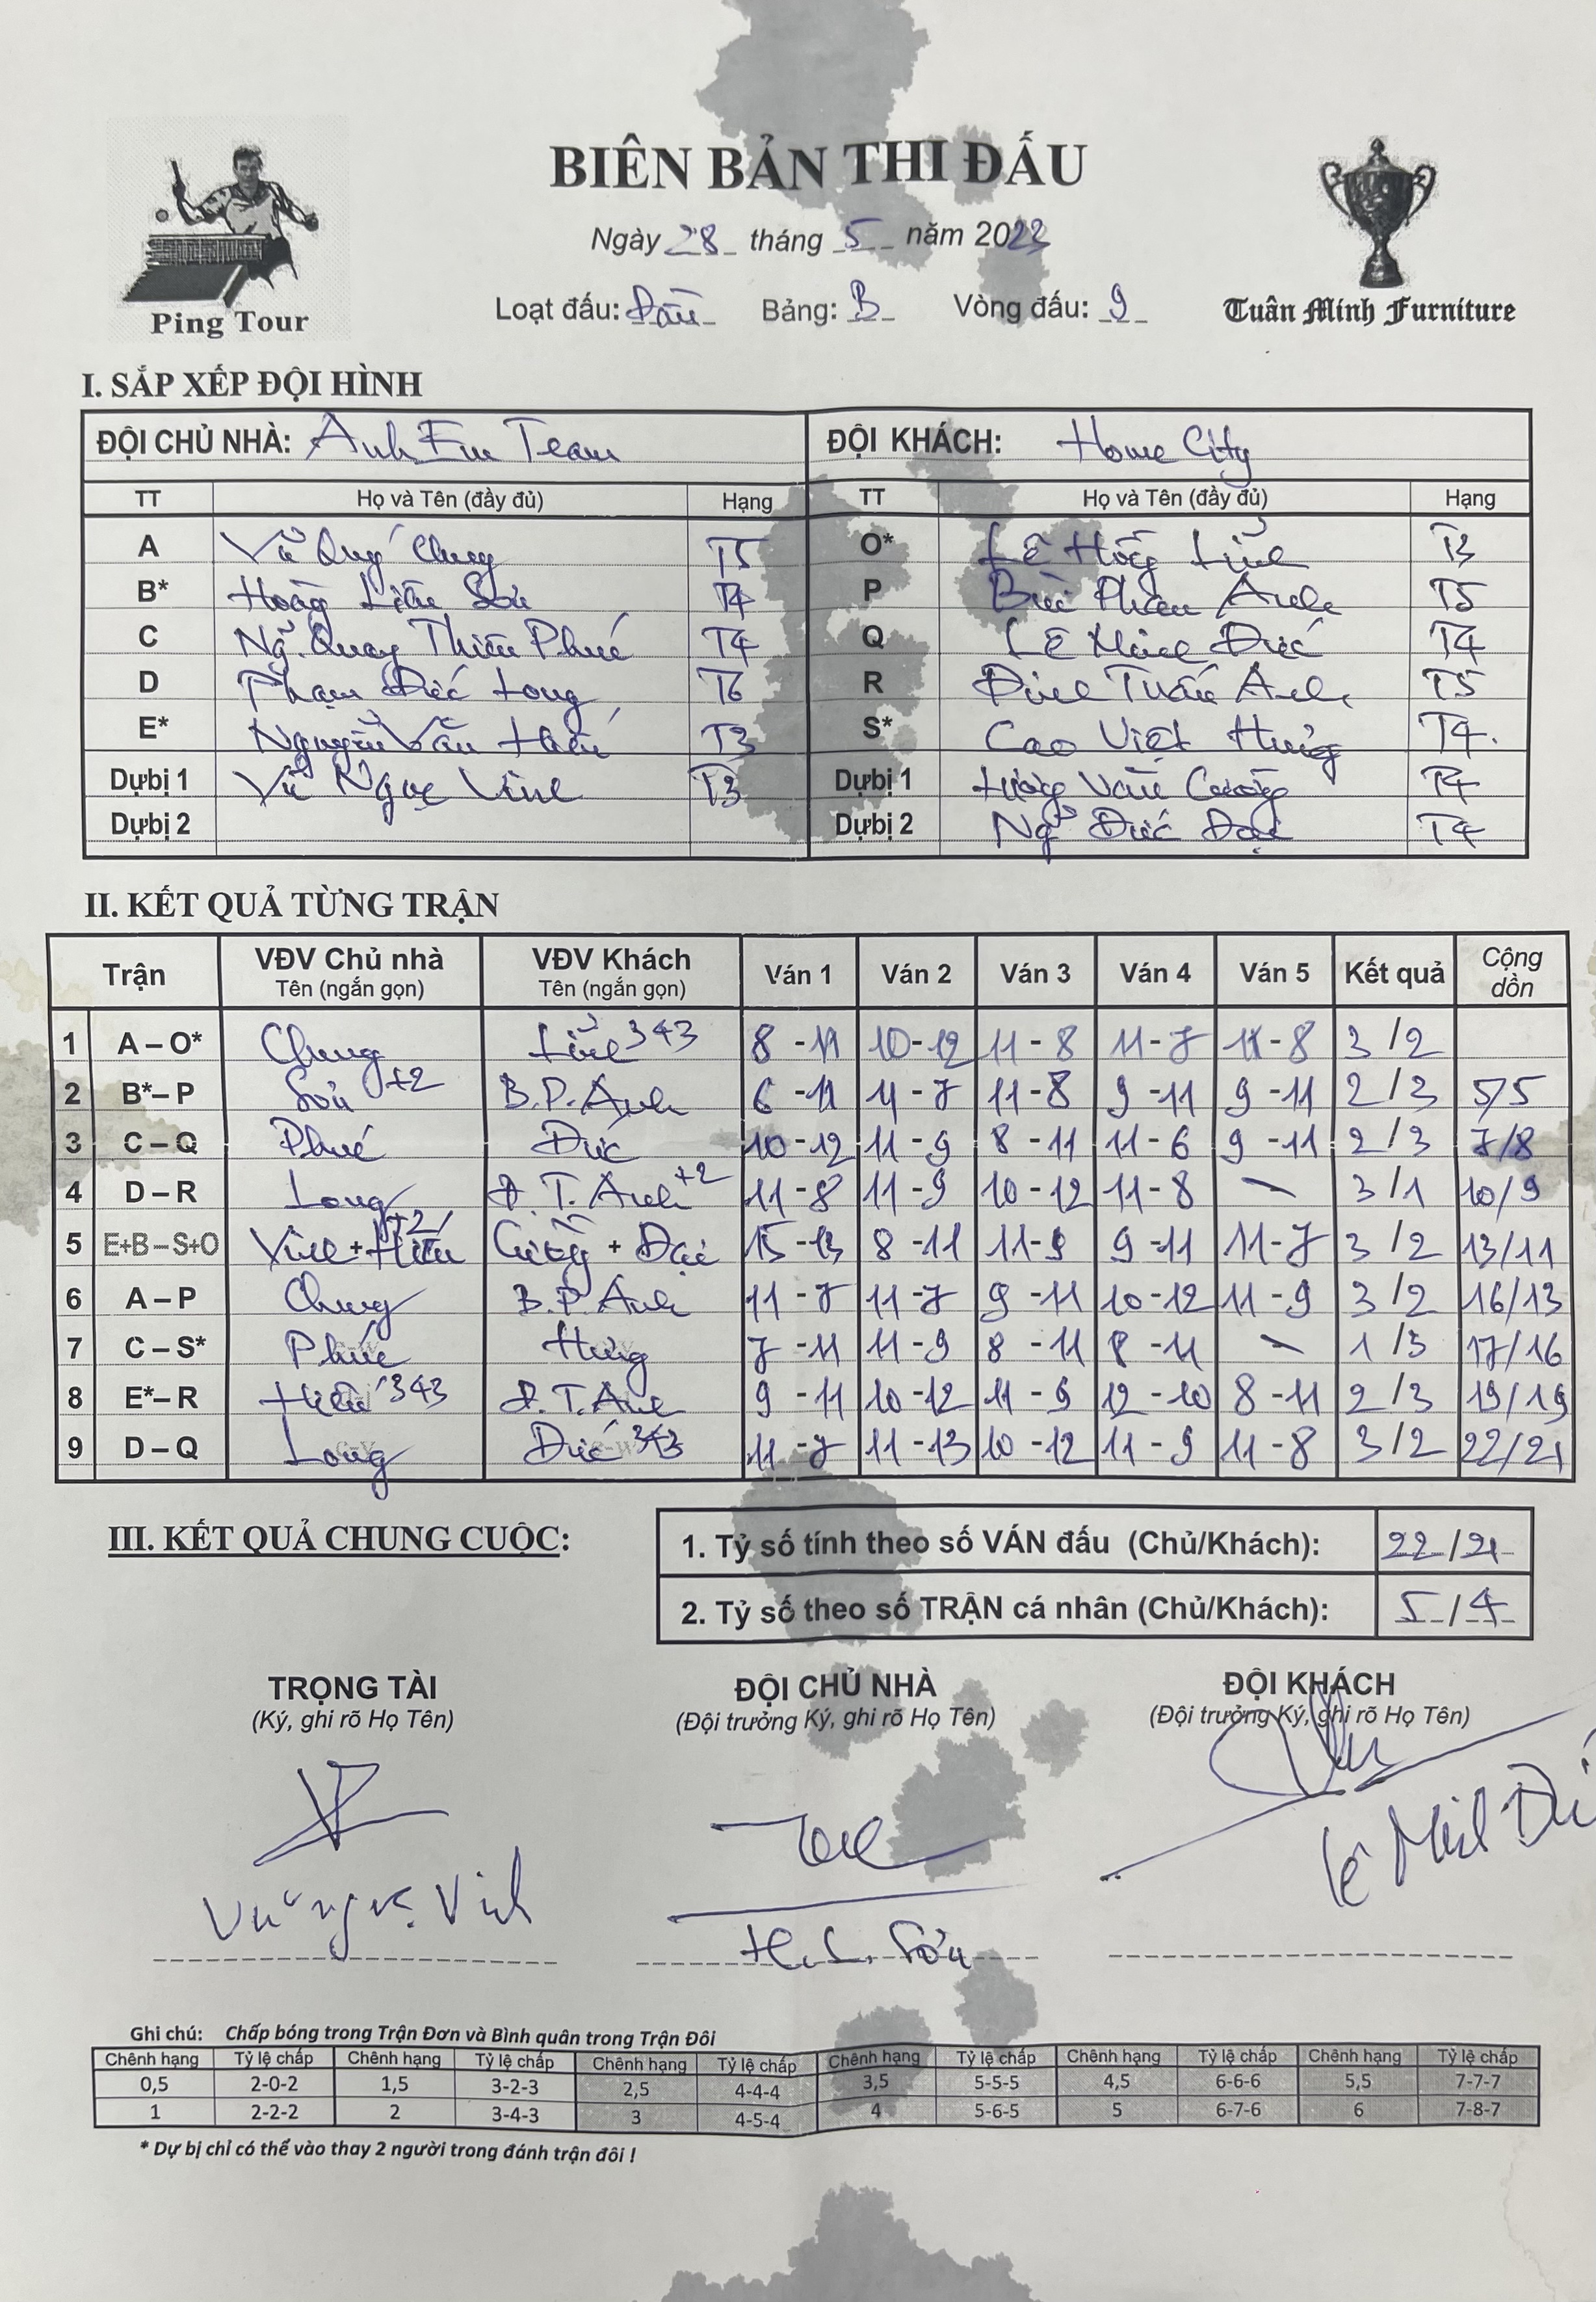 BIÊN BẢN THI ĐẤU
Ngày 28 tháng 5 năm 2023
Loạt đấu: Đầu Bảng: B Vòng đấu: 9
Ping Tour
Tuân Minh Furniture
I. SẮP XẾP ĐỘI HÌNH
ĐỘI CHỦ NHÀ: Anh Em Team ĐỘI KHÁCH: Home City
TT Họ và Tên (đầy đủ) Hạng TT Họ và Tên (đầy đủ) Hạng
A Vũ Quý Chung T5 O* Lê Hồng Lĩnh T3
B* Hoàng Liên Sơn T4 P Bùi Phan Anh T5
C Ng. Quay Thiên Phúc T4 Q Lê Minh Đức T4
D Phạm Đức Long T6 R Đinh Tuấn Anh T5
E* Nguyễn Văn Hiếu T3 S* Cao Việt Hưng T4.
Dự bị 1 Vũ Ngọc Vinh T3 Dự bị 1 Văn Cường T4
Dự bị 2 Dự bị 2 Ng Đức Đại T4
II. KẾT QUẢ TỪNG TRẬN
Trận VĐV Chủ nhà Tên (ngắn gọn) VĐV Khách Tên (ngắn gọn) Ván 1 Ván 2 Ván 3 Ván 4 Ván 5 Kết quả Cộng dồn
1 A – O* Chung Lĩnh 343 8 - 11 10 - 12 11 - 8 11 - 7 11 - 8 3 / 2
2 B*– P Sơn +2 B.P. Anh 6 - 11 11 - 7 11 - 8 9 - 11 9 - 11 2 / 3 5/5
3 C – Q Phúc Đức 10 - 12 11 - 9 8 - 11 11 - 6 9 - 11 2 / 3 7/8
4 D – R Long Đ. T. Anh +2 11 - 8 11 - 9 10 - 12 11 - 8 - 3 / 1 10/9
5 E+B – S+O Vinh + Hiếu +2 Cường + Đại 15 - 13 8 - 11 11 - 9 9 - 11 11 - 7 3 / 2 13/11
6 A – P Chung B.P. Anh 11 - 7 11 - 7 9 - 11 10 - 12 11 - 9 3 / 2 16/13
7 C – S* Phúc Hưng 7 - 11 11 - 9 8 - 11 8 - 11 - 1 / 3 17/16
8 E*– R Hiếu 343 Đ. T. Anh 9 - 11 10 - 12 11 - 9 12 - 10 8 - 11 2 / 3 19/19
9 D – Q Long Đức 343 11 - 7 11 - 13 10 - 12 11 - 9 11 - 8 3 / 2 22/21
III. KẾT QUẢ CHUNG CUỘC:
1. Tỷ số tính theo số VÁN đấu (Chủ/Khách): 22/21
2. Tỷ số theo số TRẬN cá nhân (Chủ/Khách): 5/4
TRỌNG TÀI ĐỘI CHỦ NHÀ ĐỘI KHÁCH
(Ký, ghi rõ Họ Tên) (Đội trưởng Ký, ghi rõ Họ Tên) (Đội trưởng Ký, ghi rõ Họ Tên)
Vũ Ngọc Vinh H. L. Sơn Lê Minh Đứ
Ghi chú: Chấp bóng trong Trận Đơn và Bình quân trong Trận Đôi
Chênh hạng Tỷ lệ chấp Chênh hạng Tỷ lệ chấp Chênh hạng Tỷ lệ chấp Chênh hạng Tỷ lệ chấp Chênh hạng Tỷ lệ chấp Chênh hạng Tỷ lệ chấp
0,5 2-0-2 1,5 3-2-3 2,5 4-4-4 3,5 5-5-5 4,5 6-6-6 5,5 7-7-7
1 2-2-2 2 3-4-3 3 4-5-4 4 5-6-5 5 6-7-6 6 7-8-7
* Dự bị chỉ có thể vào thay 2 người trong đánh trận đôi !